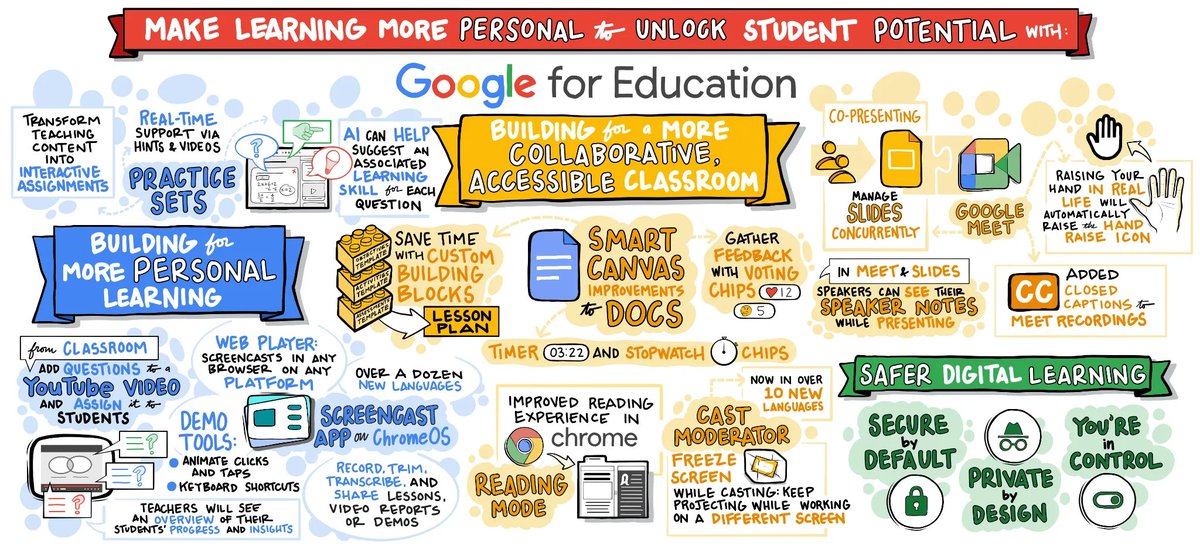 MAKE LEARNING MORE PERSONAL to UNLOCK STUDENT POTENTIAL WITH:
Google for Education
TRANSFORM
TEACHING
CONTENT
INTO
INTERACTIVE
ASSIGNMENTS
REAL-TIME
SUPPORT VIA
HINTS & VIDEOS
PRACTICE
SETS
?
AI CAN HELP
SUGGEST AN
ASSOCIATED
LEARNING
SKILL for EACH
QUESTION
BUILDING for
MORE PERSONAL
LEARNING
from CLASSROOM
ADD QUESTIONS to a
YouTube VIDEO
AND ASSIGN it to
STUDENTS
?
?
?
WEB PLAYER:
SCREENCASTS IN ANY
BROWSER ON ANY
PLATFORM
OVER A DOZEN
NEW LANGUAGES
DEMO
TOOLS:
ANIMATE CLICKS
AND TAPS
KETBOARD SHORTCUTS
SCREENCAST
APP on ChromeOS
RECORD, TRIM,
TRANSCRIBE, AND
SHARE LESSONS,
VIDEO REPORTS
OR DEMOS
TEACHERS WILL SEE
AN OVERVIEW OF THEIR
STUDENTS' PROGRESS AND INSIGHTS
BUILDING for a MORE
COLLABORATIVE,
ACCESSIBLE CLASSROOM
SAVE TIME
WITH CUSTOM
BUILDING
BLOCKS
LESSON
PLAN
SMART
CANVAS
IMPROVEMENTS
to DOCS
GATHER
FEEDBACK
WITH VOTING
CHIPS
12
5
TIMER 03:22 AND STOPWATCH CHIPS
IMPROVED READING
EXPERIENCE IN
chrome
READING
MODE
CAST
MODERATOR
NOW IN OVER
10 NEW
LANGUAGES
FREEZE
SCREEN
WHILE CASTING: KEEP
PROJECTING WHILE WORKING
ON A DIFFERENT SCREEN
CO-PRESENTING
MANAGE
SLIDES
CONCURRENTLY
GOOGLE
MEET
RAISING YOUR
HAND IN REAL
LIFE WILL
AUTOMATICALLY
RAISE the HAND
RAISE ICON
IN MEET & SLIDES
SPEAKERS CAN SEE THEIR
SPEAKER NOTES
WHILE PRESENTING
CC
ADDED
CLOSED
CAPTIONS to
MEET RECORDINGS
SAFER DIGITAL LEARNING
SECURE
by
DEFAULT
PRIVATE
by
DESIGN
YOU'RE
in
CONTROL